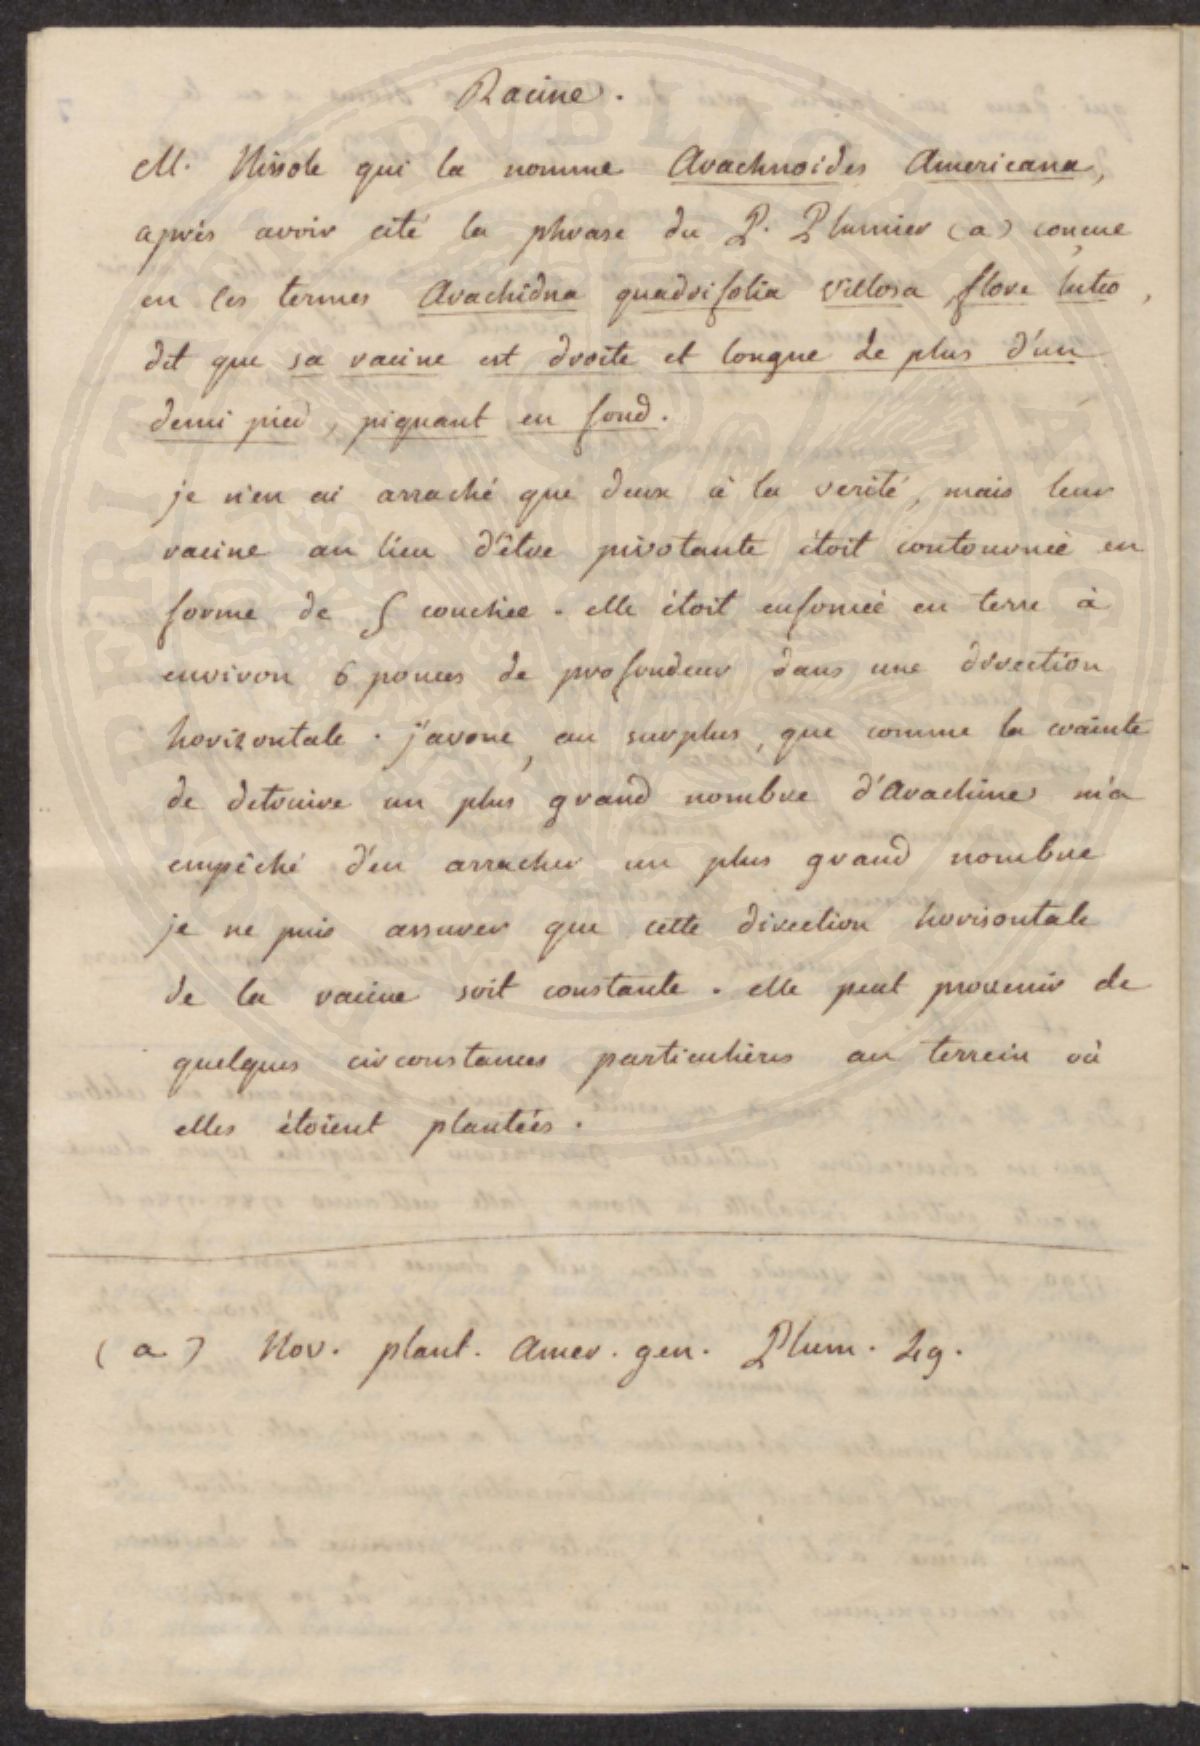 Racine.
M. Nissole qui la nomme Arachnoides Americana,
après avoir cité la phrase du P. Plumier (a) conçue
en ces termes Arachidna quadrifolia villosa, flore luteo,
dit que sa racine est droite et longue de plus d'un
demi pied, piquant en fond.
je n'en ai arraché que deux à la verité, mais leur
racine au lieu d'être pivotante étoit contournée en
forme de S couchée. elle étoit enfoncée en terre à
environ 6 pouces de profondeur dans une direction
horizontale. j'avoue, au surplus, que comme la crainte
de detruire un plus grand nombre d'Arachine m'a
empêché d'en arracher un plus grand nombre
je ne puis assurer que cette direction horisontale
de la racine soit constante. elle peut provenir de
quelques circonstances particulières au terrein où
elles étoient plantées.
(a) Nov. plant. Amer. gen. Plum. 49.